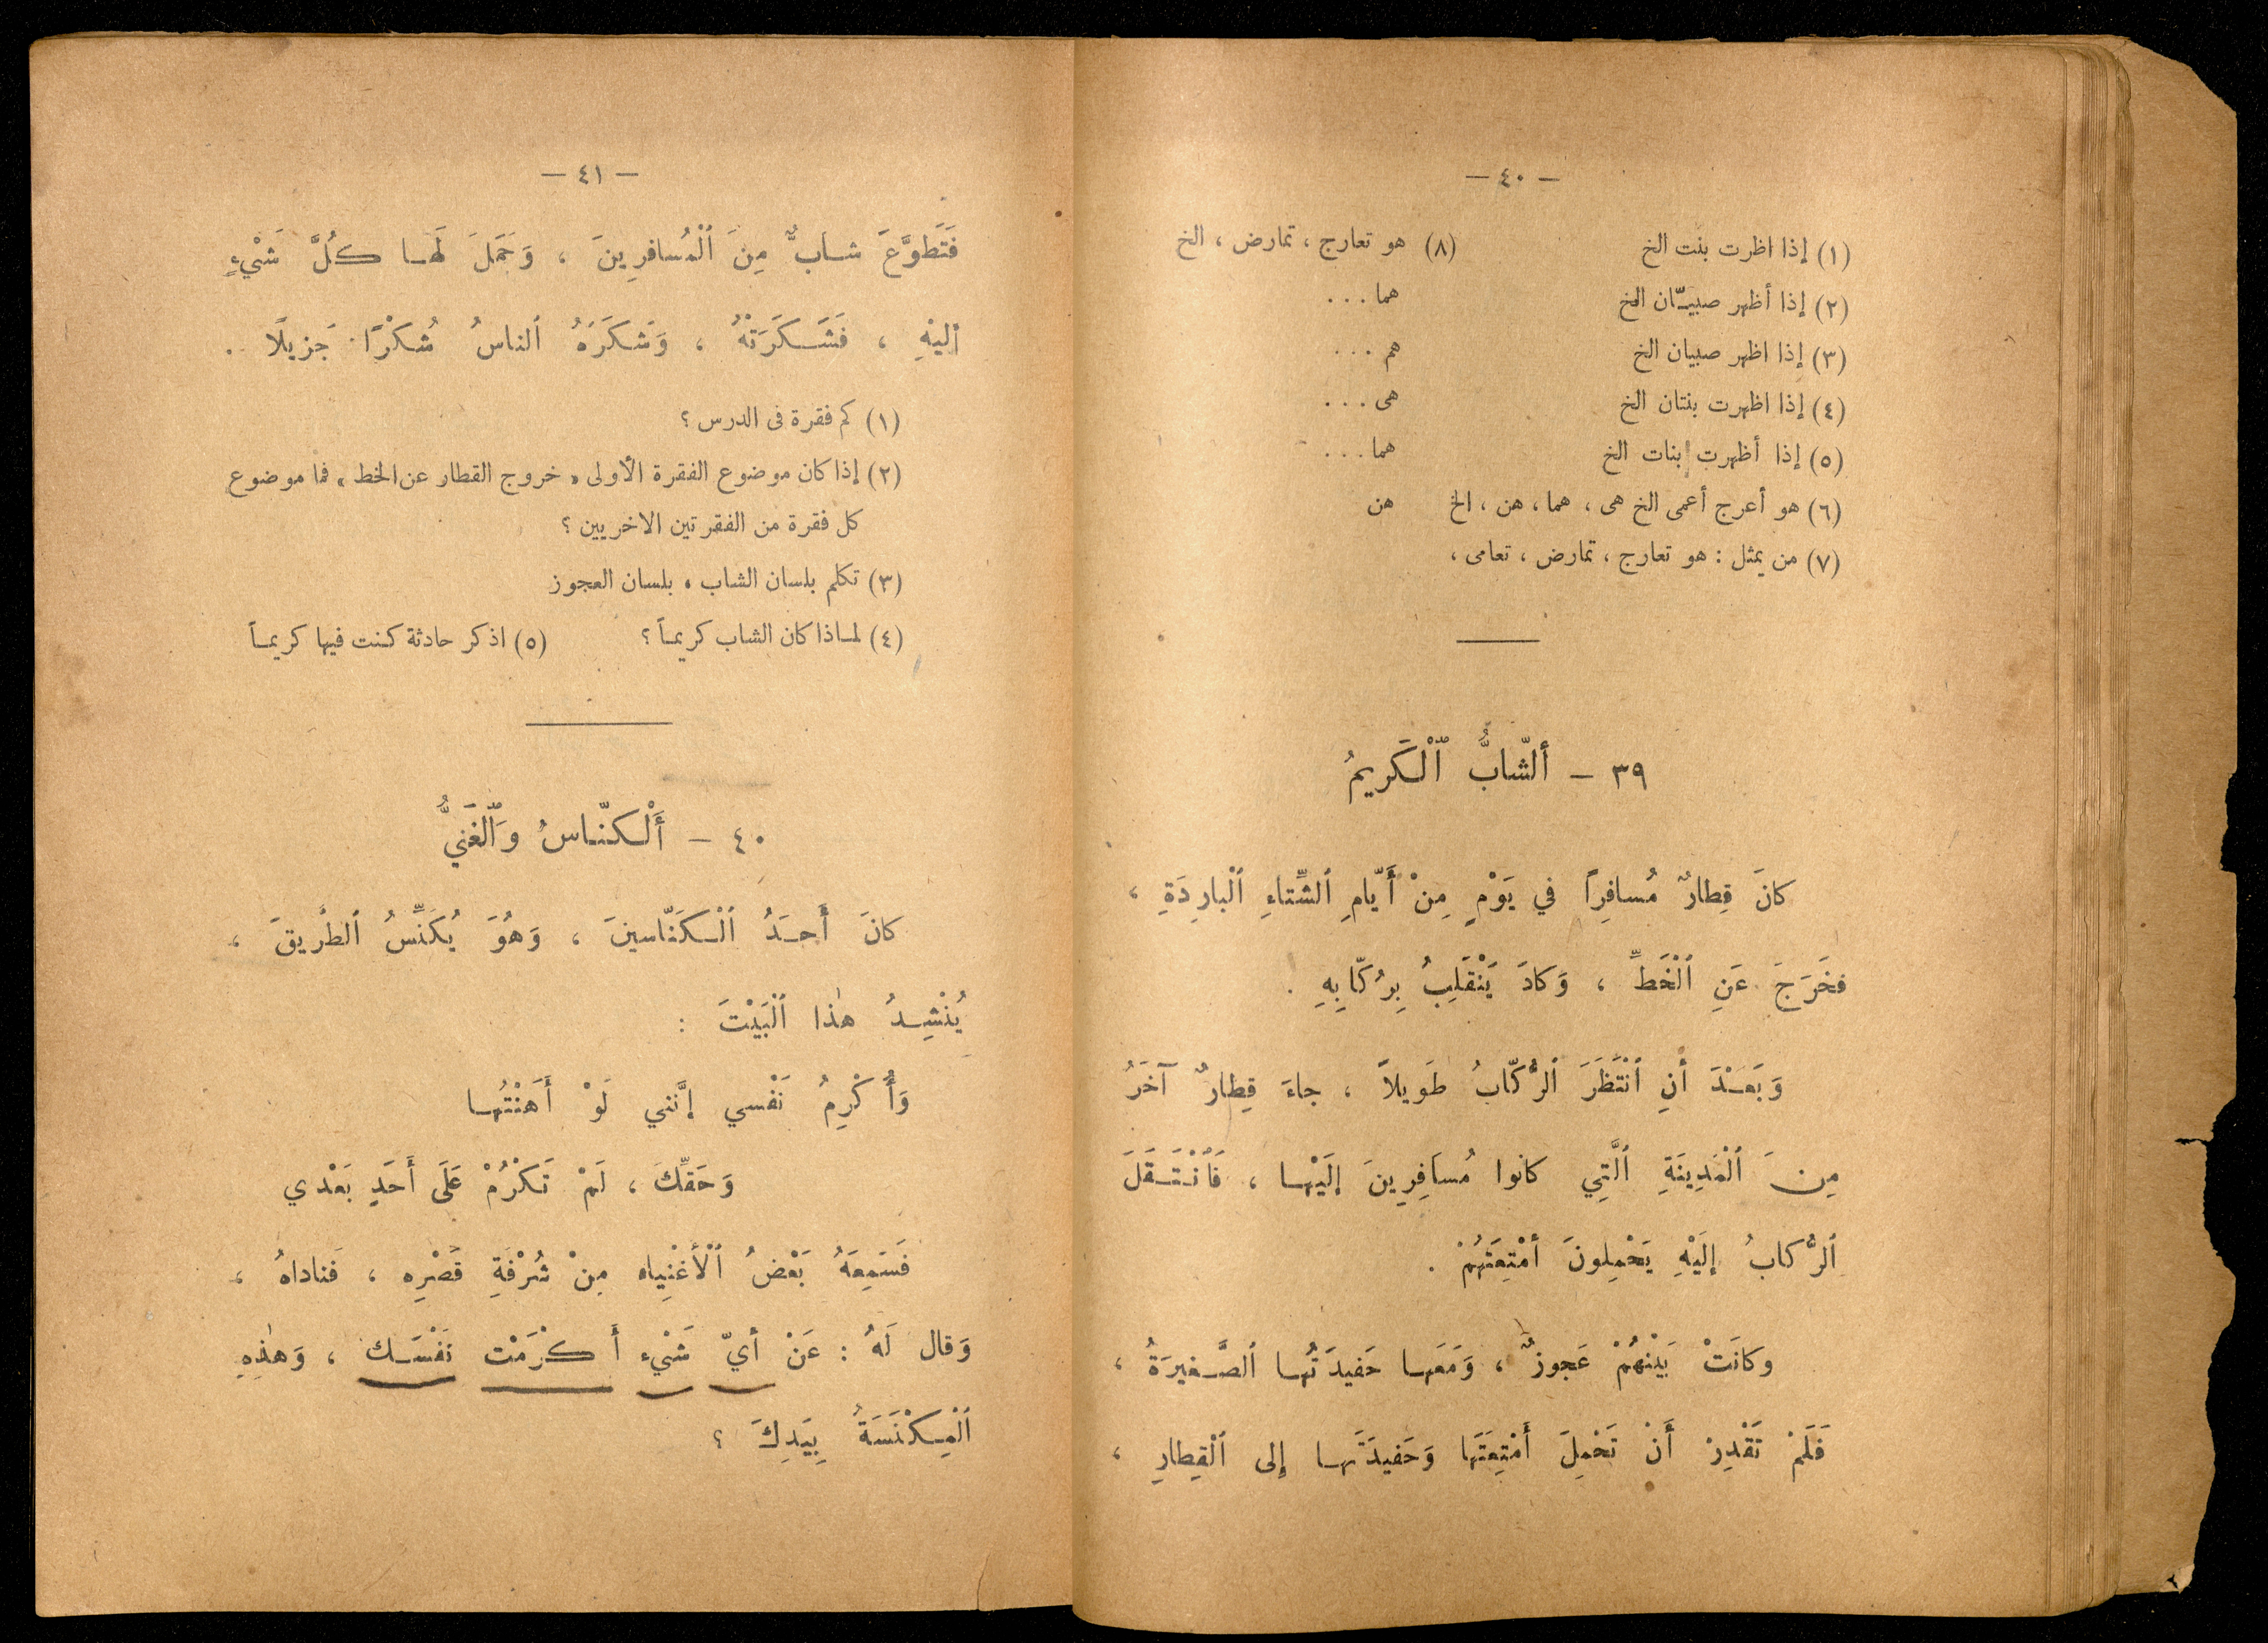 — ٤٠ —
(١) إذا اظرت بنت الخ
(٢) إذا أظهر صبيّان الخ
(٣) إذا اظهر صبيان الخ
(٤) إذا اظهرت بنتان الخ
(٥) إذا أظهرت بنات الخ
(٦) هو أعرج أعمى الخ هى ، هما ، هن ، الخ
(٧) من يمثل : هو تعارج ، تمارض ، تعامى ،
(٨) هو تعارج ، تمارض ، الخ
هما . . .
هم . . .
هى . . .
هما . . .
هن
٣٩ — ألشّابُّ ٱلْكَريمُ
كانَ قِطارٌ مُسافِراً في يَوْمٍ مِنْ أَيّامِ ٱلشِّتاءِ ٱلْبارِدَةِ ،
فخَرَجَ عَنِ ٱلْخَطِّ ، وَكادَ يَنْقَلِبُ بِرُكّابِهِ .
وَبَعْدَ أنِ ٱنْتَظَرَ ٱلرُّكّابُ طَويلاً ، جاءَ قِطارٌ آخَرُ
مِنَ ٱلْمَدِينَةِ ٱلَّتِي كانوا مُسَافِرِينَ إلَيْها ، فَٱنْتَقَلَ
ٱلرُّكابُ إلَيْهِ يَحْمِلونَ أمْتِعَتَهُمْ .
وكانَتْ بَيْنَهُمْ عَجوزٌ ، وَمَعَها حَفيدَتُها ٱلصَّغيرَةُ ،
فَلَمْ تَقْدِرْ أَنْ تَحْمِلَ أَمْتِعَتَها وَحَفيدَتَها إلى ٱلْقِطارِ ،
— ٤١ —
فَتَطوَّعَ شابٌّ مِنَ ٱلْمُسافرِينَ ، وَحَمَلَ لَها كُلَّ شَيْءٍ
إليْهِ ، فَشَكَرَتْهُ ، وَشَكَرَهُ ٱلناسُ شُكْرًا جَزيلًا .
(١) كم فقرة فى الدرس ؟
(٢) إذا كان موضوع الفقرة الأولى « خروج القطار عن الخط » فما موضوع
كل فقرة من الفقرتين الاخريين ؟
(٣) تكلم بلسان الشاب ، بلسان العجوز
(٤) لماذا كان الشاب كريماً ؟ (٥) اذكر حادثة كنت فيها كريماً
٤٠ — أَلْكنّاسُ وَٱلْغَنيُّ
كانَ أَحَدُ ٱلْكَنّاسينَ ، وَهُوَ يُكَنِّسُ ٱلطَّريقَ ،
يُنْشِدُ هٰذا ٱلْبَيْتَ :
وَأُكْرِمُ نَفْسي إنَّني لَوْ أَهَنْتُها
وَحَقِّكَ ، لَمْ تَكْرُمْ عَلَى أَحَدٍ بَعْدي
فَسَمِعَهُ بَعْضُ ٱلْأَغْنِياء مِنْ شُرْفَةِ قَصْرِه ، فَناداهُ ،
وَقال لَهُ : عَنْ أيِّ شَيْء أَكْرَمْت نَفْسَك ، وَهٰذِهِ
ٱلْمِكْنَسَةُ بِيَدِكَ ؟